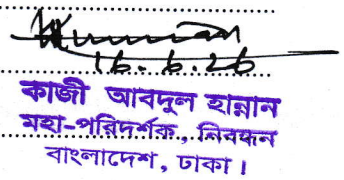 16.6.26
কাজী আবদুল হান্নান
মহা-পরিদর্শক, নিবন্ধন
বাংলাদেশ, ঢাকা।